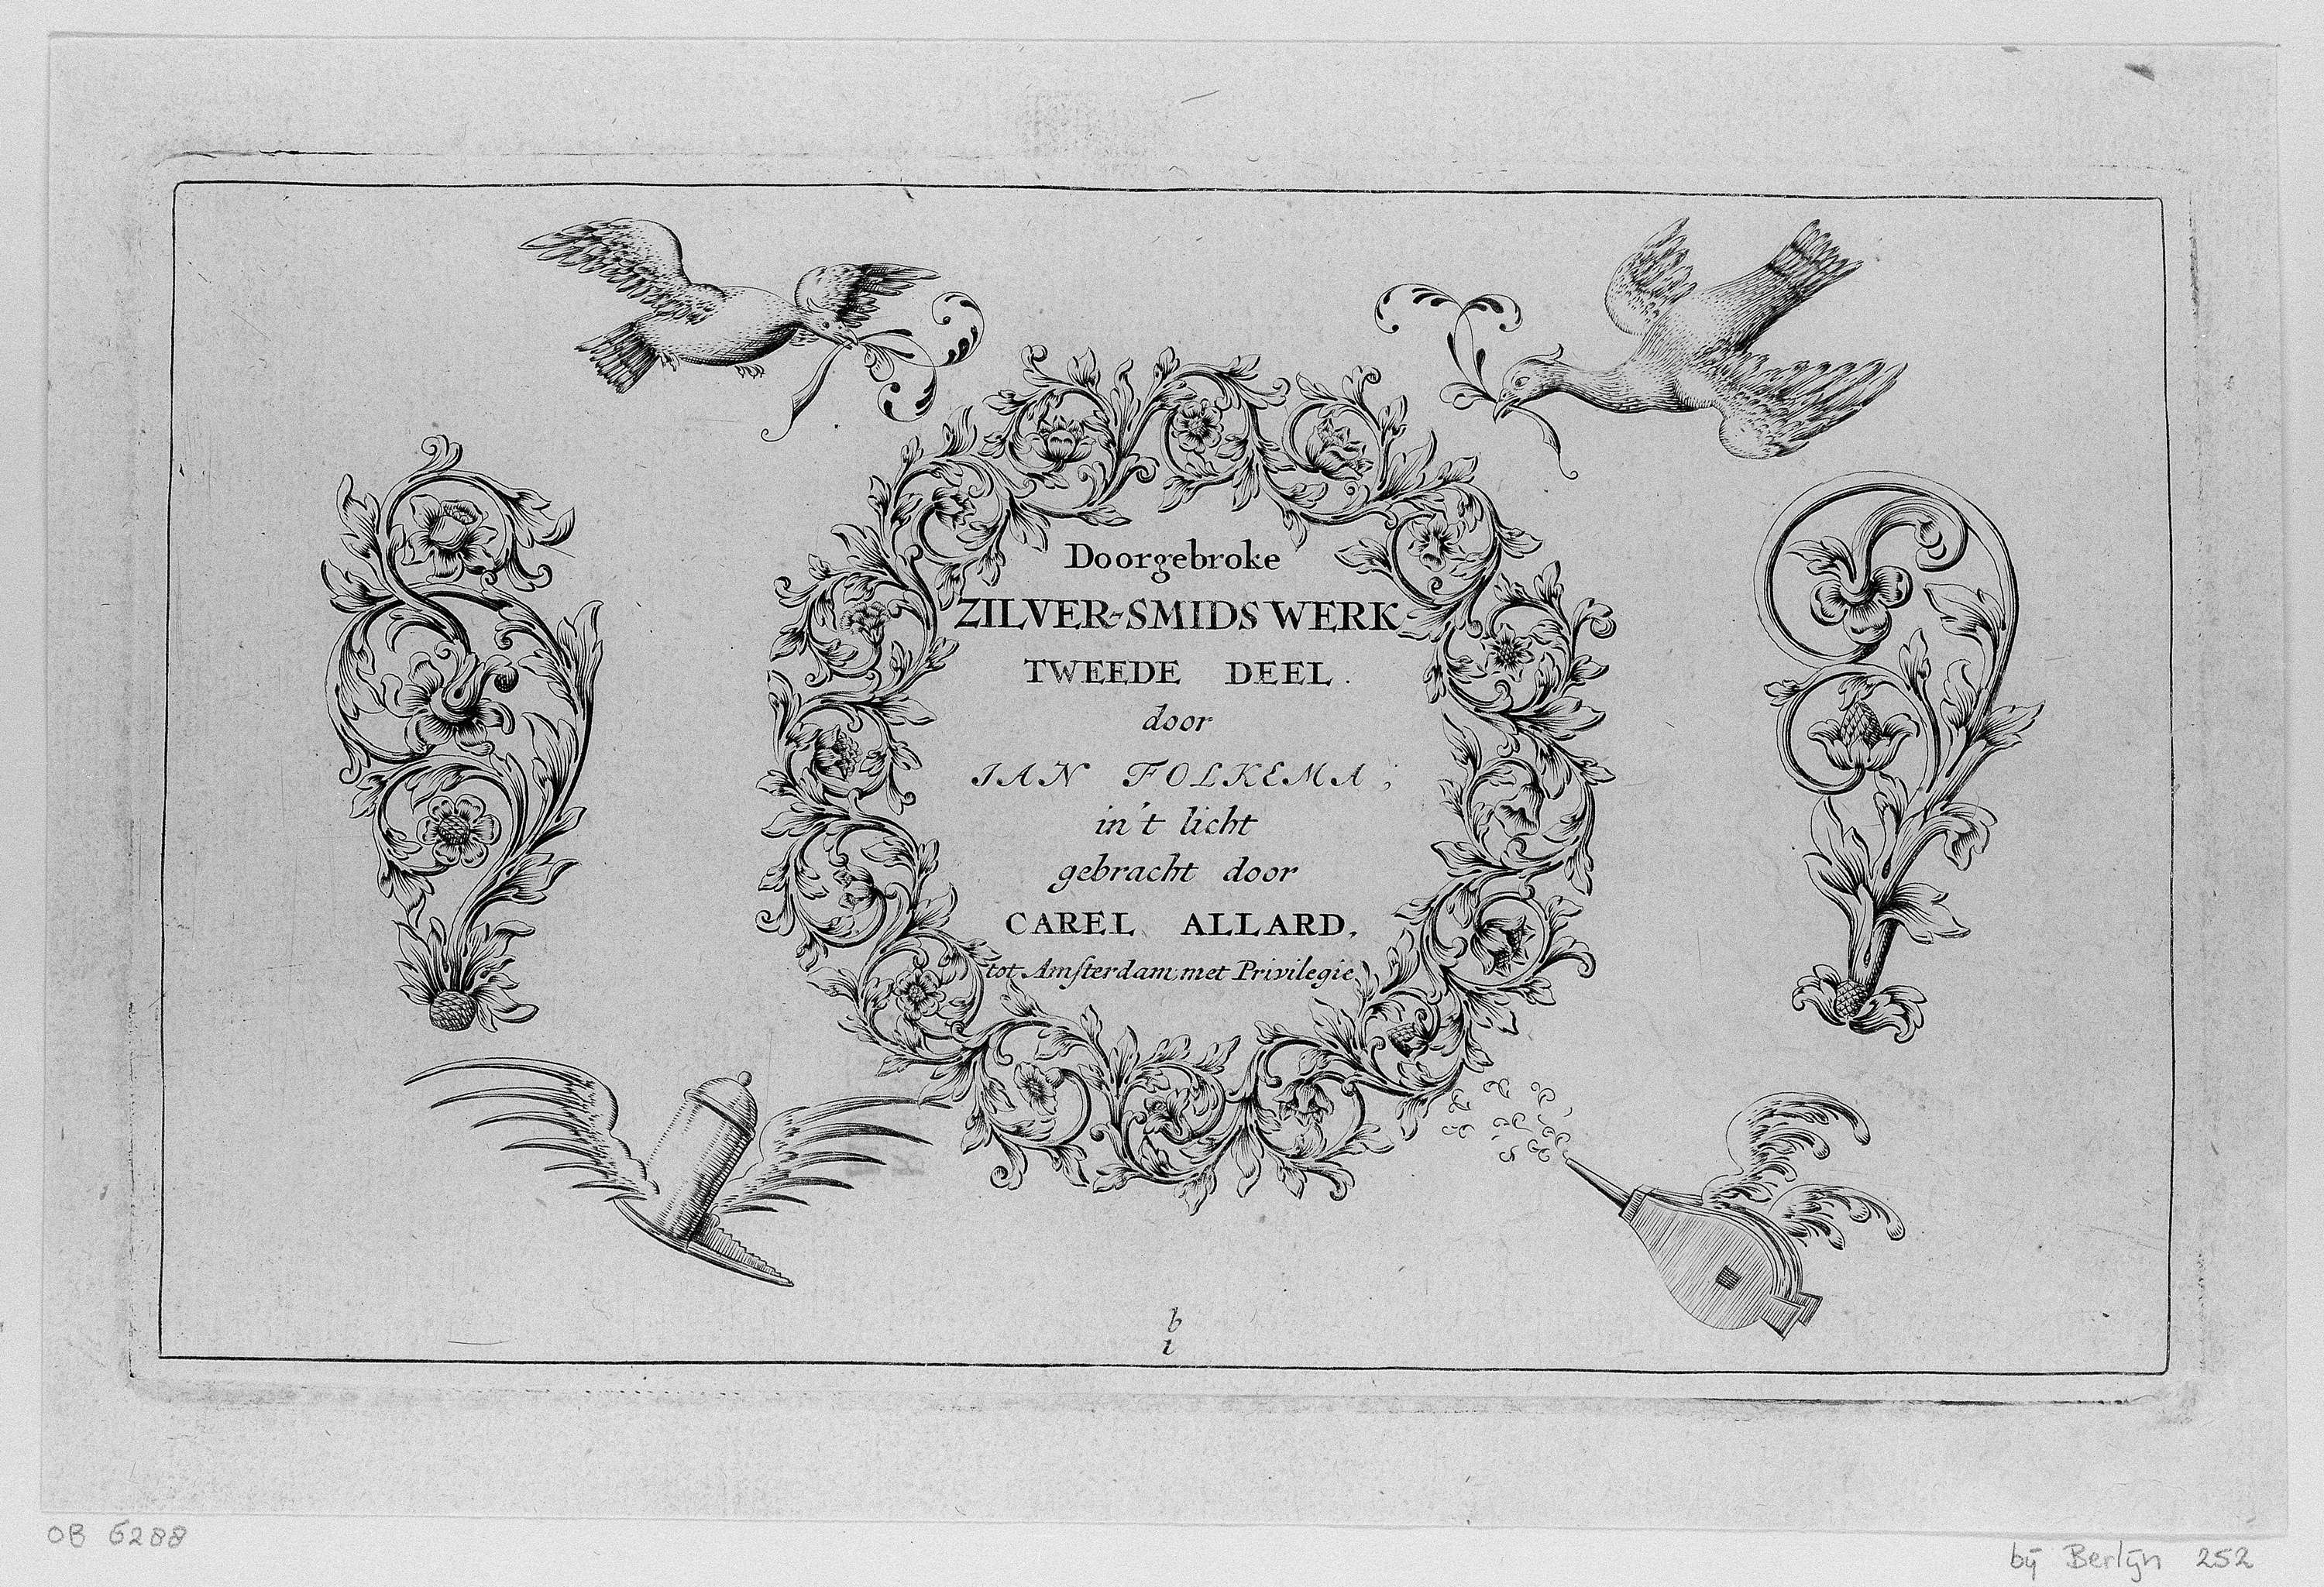 Doorgebroke
ZILVER-SMIDS WERK
TWEEDE DEEL.
door
IAN FOLKEMA;
in't licht
gebracht door
CAREL ALLARD,
tot Amſterdam met Privilegie
b
1
OB 6288
bÿ Berlÿn 252